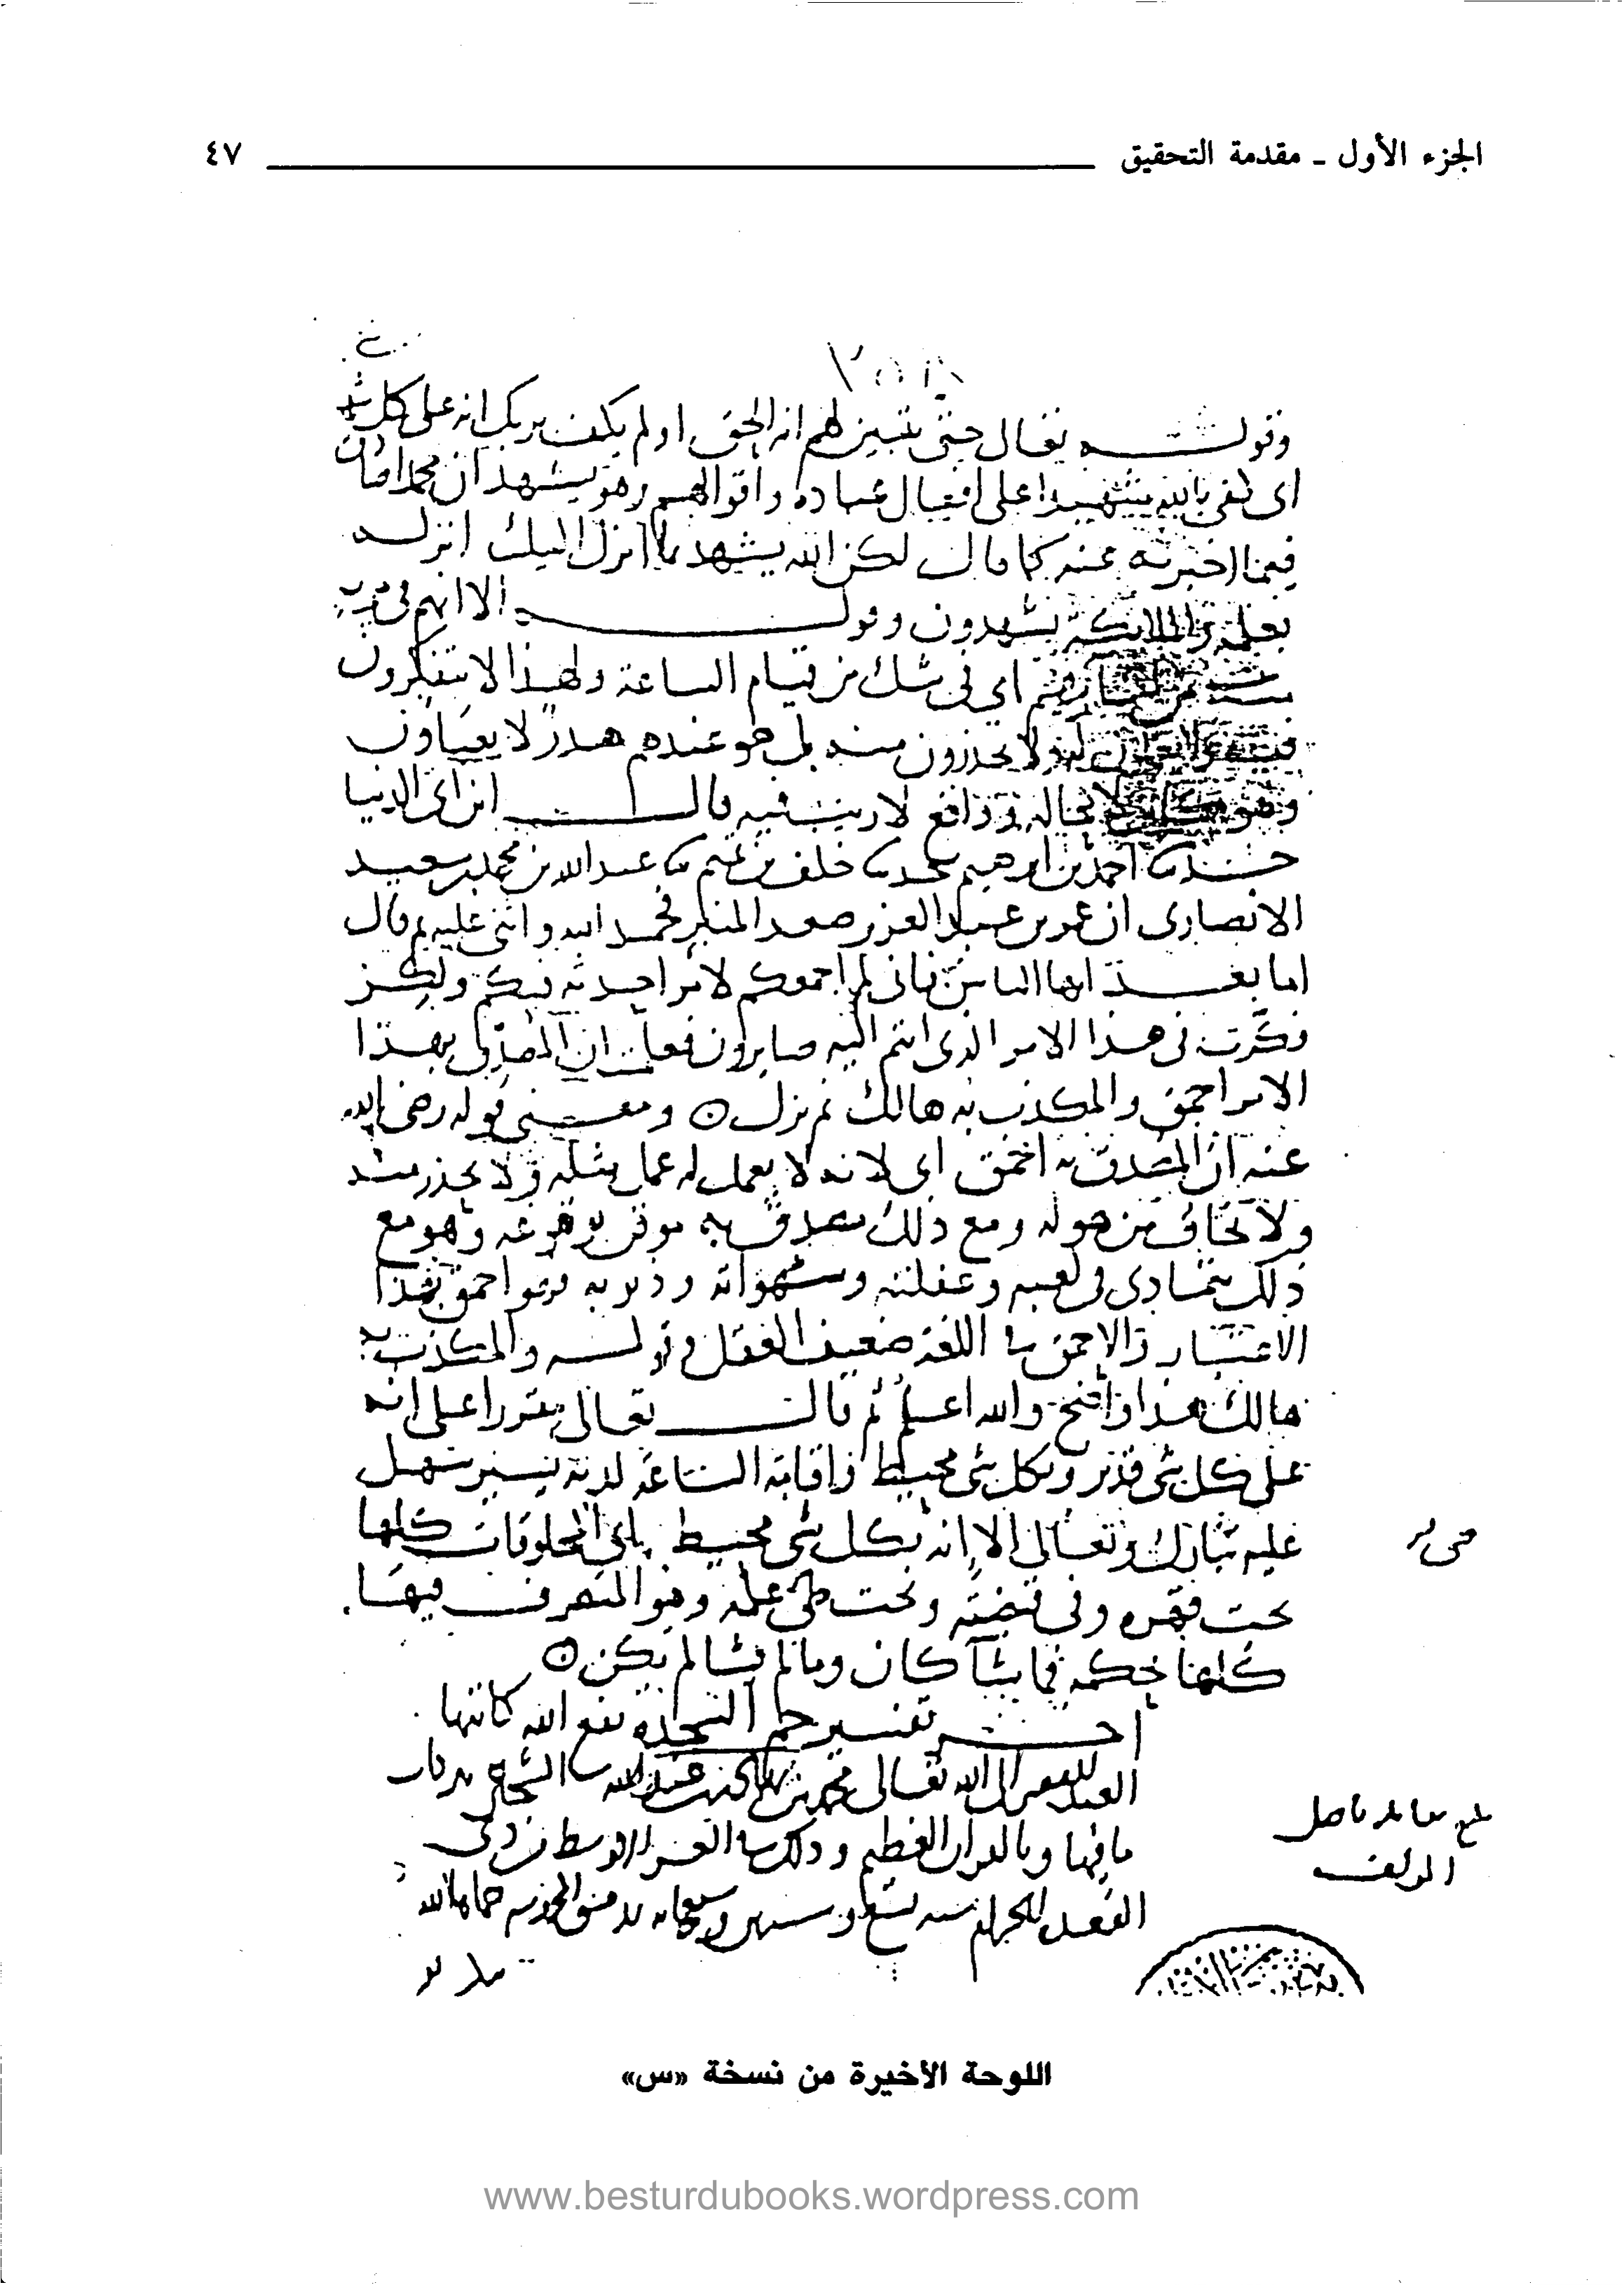 الجزء الأول - مقدمة التحقيق ٤٧
وقوله تعالى حتى يتبين لهم انه الحق اولم يكف بربك انه على كل شى
اى كفى بالله شهيدا على افعال عباده واقوالهم وهو يشهد ان محمدا صادق
فيما اخبر به عنه كما قال لكن الله يشهد بما انزل اليك انزله
بعلمه والملائكة يشهدون وقوله الا انهم فى مرية
من لقاء ربهم اى فى شك من قيام الساعة ولهذا لا يتفكرون
فيه ولا يعملون له ولا يحذرون منه بل هو عندهم هدر لا يعباون
وهو كاين لا محالة وواقع لا ريب فيه قال ابن ابى الدنيا
احمد بن ابرهيم خلف بن تميم عبد الله بن محمد بن سعيد
الانصارى ان عمر بن عبد العزيز صعد المنبر فحمد الله واثنى عليه ثم قال
اما بعد ايها الناس فانى لم اجمعكم لامر احدثه فيكم ولكن
فكرت فى هذا الامر الذى انتم اليه صايرون فعلمت ان المصدق بهذا
الامر احمق والمكذب به هالك ثم نزل ومعنى قوله رضى الله
عنه ان المصدق به احمق اى لانه لا يعمل له عمل مثله ولا يحذر منه
ولا يخاف من هوله ومع ذلك مصدق به موقن بوقوعه وهو مع
ذلك يتمادى فى لعبه وغفلته وشهواته وذنوبه فهو احمق بهذا
الاعتبار والاحمق فى اللغة ضعيف العقل وقوله والمكذب به
هالك هذا واضح والله اعلم ثم قال تعالى مقررا على انه
على كل شى قدير وبكل شى محيط واقامة الساعة لديه يسير سهل
عليه تبارك وتعالى الا انه بكل شى محيط اى المخلوقات كلها
تحت قهره وفى قبضته وتحت طى علمه وهو المتصرف فيها
كلها بحكمه فما شآ كان وما لم يشا لم يكن
اخر تفسير حم السجدة نفع الله كاتبها
العبد الفقير الى الله تعالى محمد بن
ما فيها وبالقران العظيم وذلك فى العشر الاوسط من ذى
القعدة الحرام سنة تسع وسبعمايه بدمشق المحروسه حماها الله
اللوحة الأخيرة من نسخة «س»
www.besturdubooks.wordpress.com